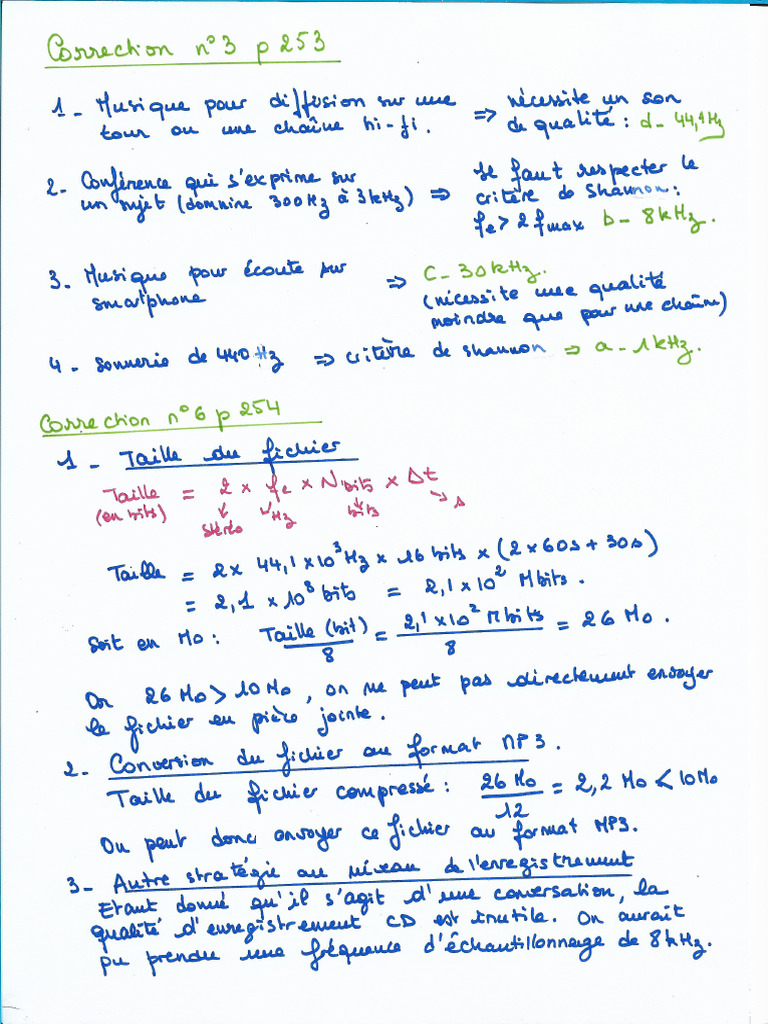 Correction n°3 p 253
1 - Musique pour diffusion sur une tour ou une chaîne hi-fi. ⇒ nécessite un son de qualité : d - 44,1Hz
2 - Conférence qui s'exprime sur un sujet (domaine 300Hz à 3kHz) ⇒ Il faut respecter le critère de Shannon : fe > 2 fmax b - 8kHz.
3 - Musique pour écoute sur smartphone ⇒ C - 30kHz. (nécessite une qualité moindre que pour une chaîne)
4 - sonnerie de 440Hz ⇒ critère de shannon ⇒ a - 1kHz.
Correction n°6 p 254
1 - Taille du fichier
Taille = 2 × fe × Nbits × Δt
(en bits) ↓ stéréo ↓ Hz ↓ bits ↘ s
Taille = 2 × 44,1 × 10³ Hz × 16 bits × (2 × 60s + 30s)
= 2,1 × 10⁸ bits = 2,1 × 10² Mbits.
Soit en Mo : Taille (bit) / 8 = 2,1 × 10² Mbits / 8 = 26 Mo.
Or 26 Mo > 10 Mo, on ne peut pas directement envoyer
le fichier en pièce jointe.
2 - Conversion du fichier au format MP3.
Taille du fichier compressé : 26 Mo / 12 = 2,2 Mo < 10Mo
On peut donc envoyer ce fichier au format MP3.
3 - Autre stratégie au niveau de l'enregistrement
Etant donné qu'il s'agit d'une conversation, la
qualité d'enregistrement CD est inutile. On aurait
pu prendre une fréquence d'échantillonnage de 8kHz.